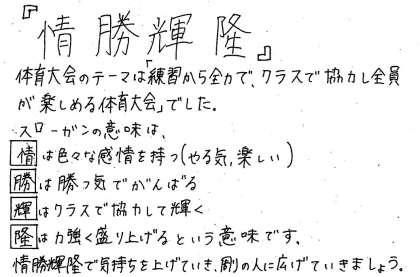 『情勝輝隆』
体育大会のテーマは「練習から全力で、クラスで協力し全員
が楽しめる体育大会」でした。
スローガンの意味は、
情は色々な感情を持つ(やる気,楽しい)
勝は勝つ気でがんばる
輝はクラスで協力して輝く
隆は力強く盛り上げるという意味です。
情勝輝隆で気持ちを上げていき、周りの人に広げていきましょう。